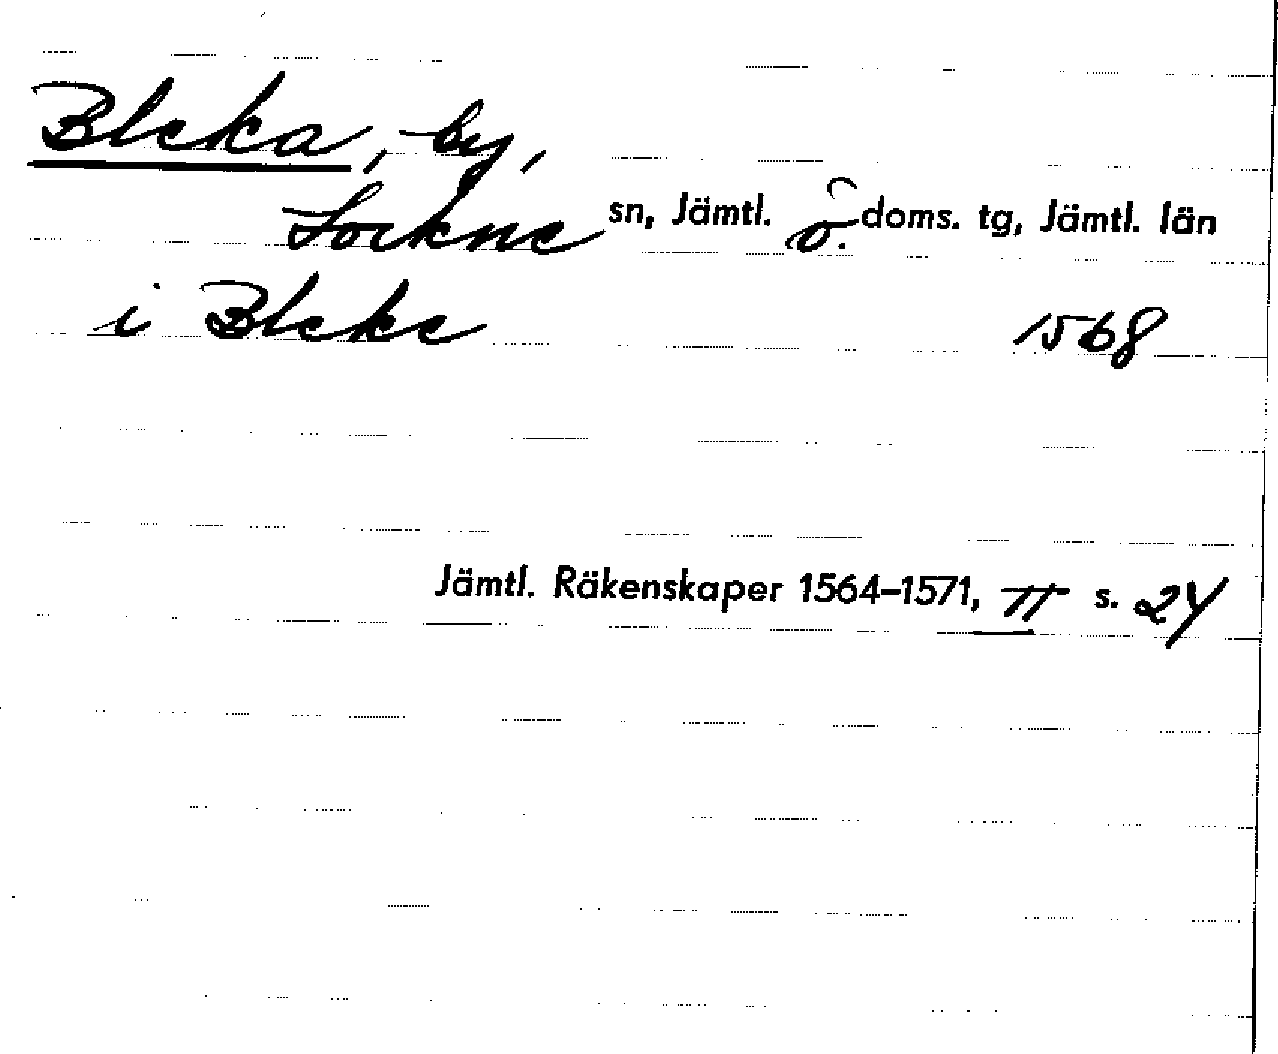 Bleka, by,
Lockne sn, Jämtl. ö. doms. tg, Jämtl. län
i Bleke 1568
Jämtl. Räkenskaper 1564–1571, II s. 24